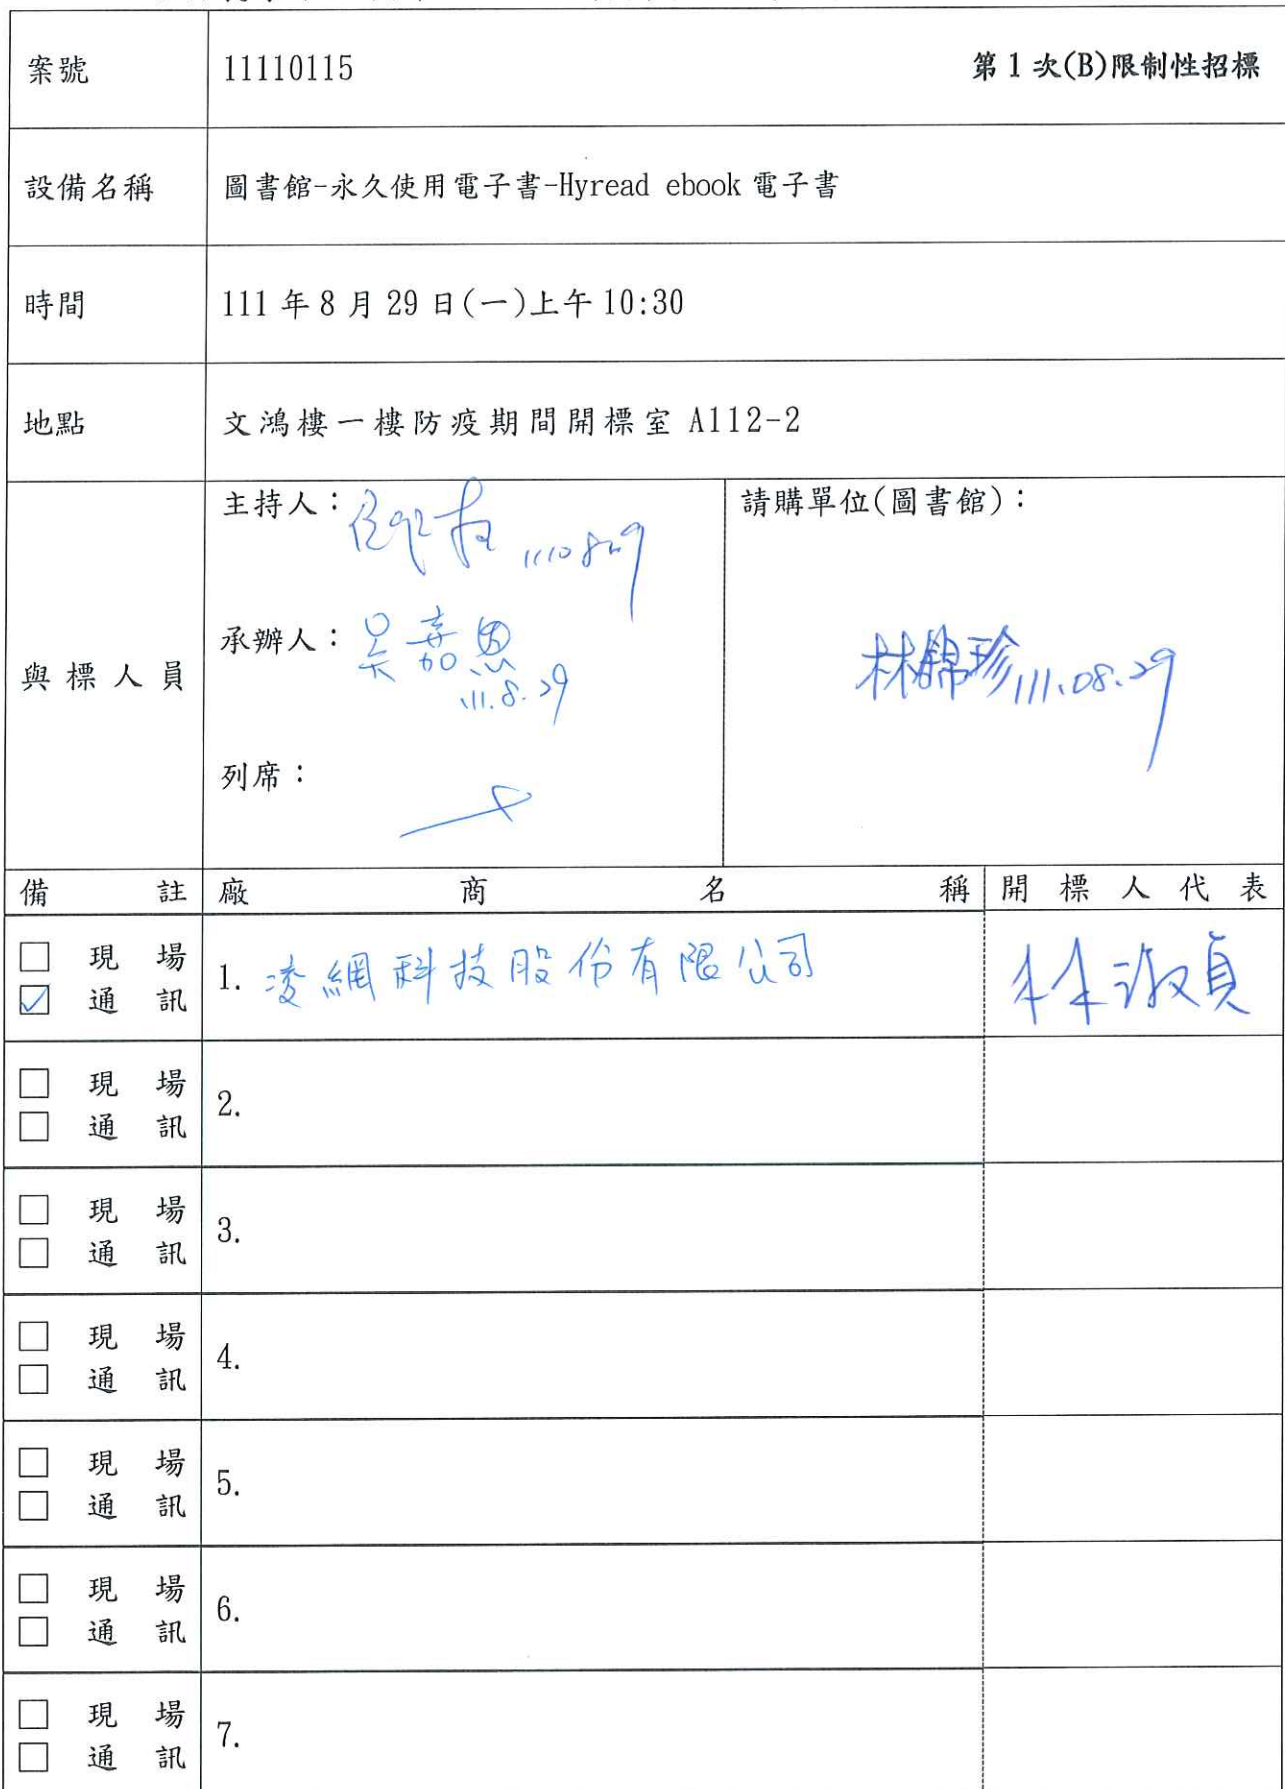 案號 11110115 第1次(B)限制性招標
設備名稱 圖書館-永久使用電子書-Hyread ebook 電子書
時間 111年8月29日(一)上午10:30
地點 文鴻樓一樓防疫期間開標室 A112-2
與標人員
主持人：
承辦人：吳嘉恩
111.8.29
列席：
請購單位(圖書館)：
林錦珍 111.08.29
備註 廠商名稱 開標人代表
□ 現場
☑ 通訊
1. 凌網科技股份有限公司 林淑貞
□ 現場
□ 通訊
2.
□ 現場
□ 通訊
3.
□ 現場
□ 通訊
4.
□ 現場
□ 通訊
5.
□ 現場
□ 通訊
6.
□ 現場
□ 通訊
7.